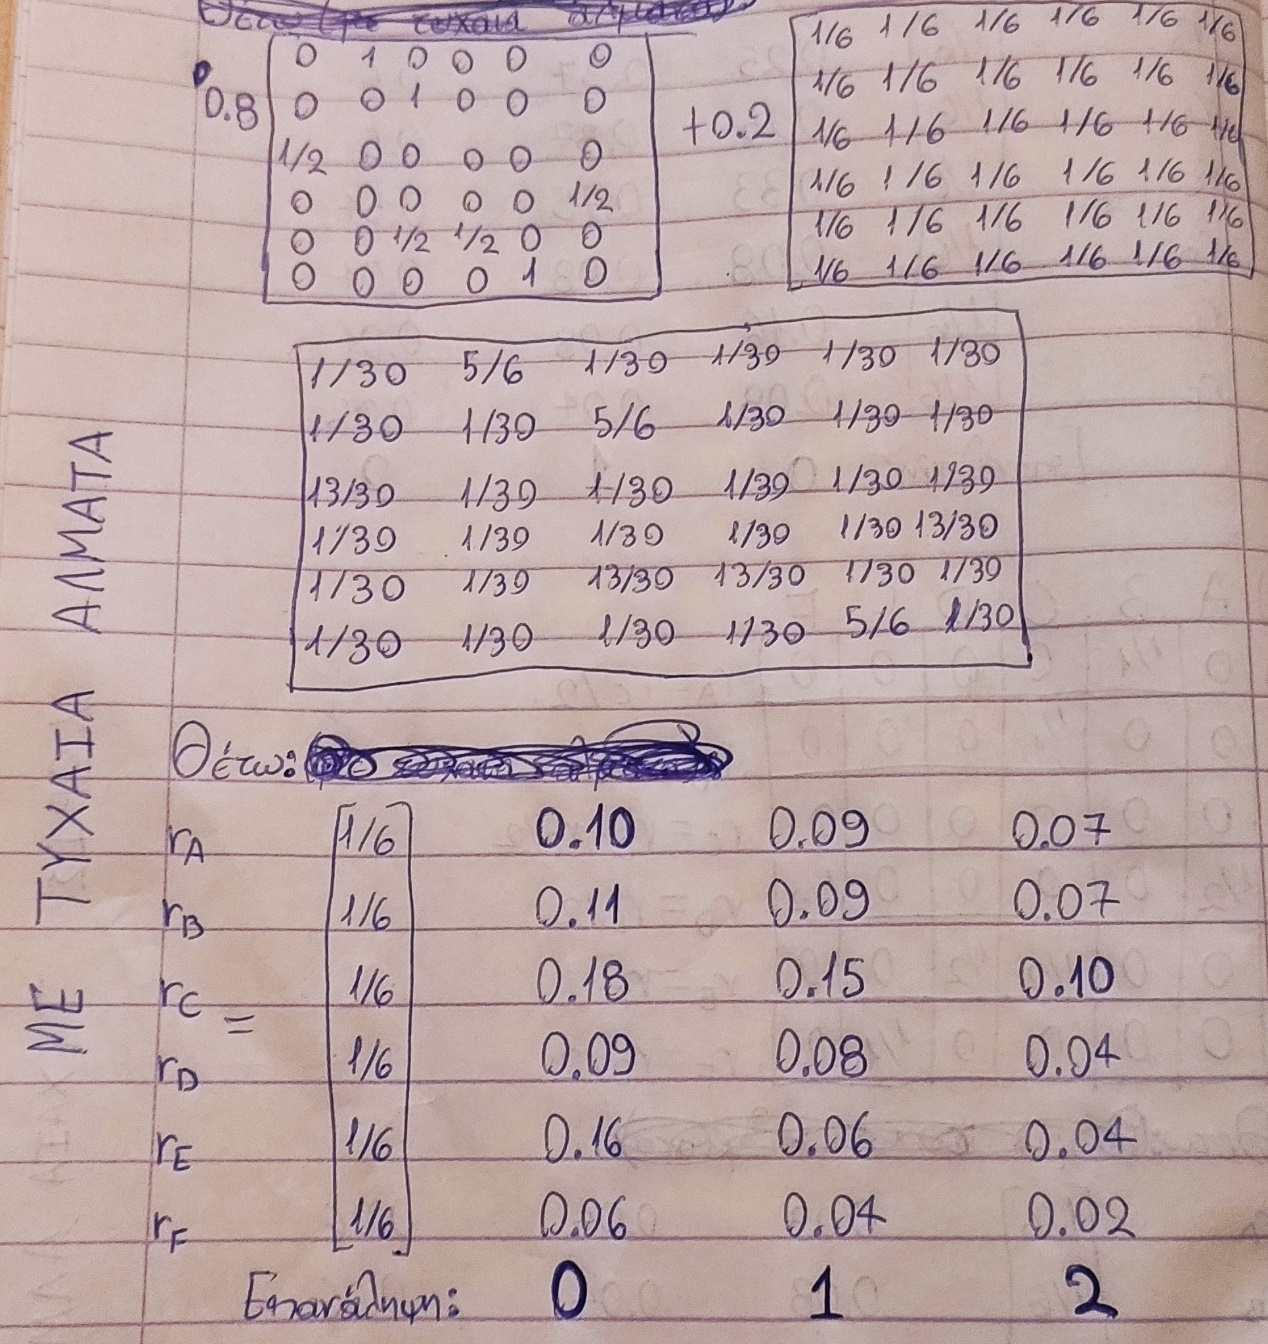 0 1 0 0 0 0 1/6 1/6 1/6 1/6 1/6 1/6
0.8 0 0 1 0 0 0 1/6 1/6 1/6 1/6 1/6 1/6
1/2 0 0 0 0 0 +0.2 1/6 1/6 1/6 1/6 1/6 1/6
0 0 0 0 0 1/2 1/6 1/6 1/6 1/6 1/6 1/6
0 0 1/2 1/2 0 0 1/6 1/6 1/6 1/6 1/6 1/6
0 0 0 0 1 0 1/6 1/6 1/6 1/6 1/6 1/6
1/30 5/6 1/30 1/30 1/30 1/30
1/30 1/30 5/6 1/30 1/30 1/30
13/30 1/30 1/30 1/30 1/30 1/30
1/30 1/30 1/30 1/30 1/30 13/30
1/30 1/30 13/30 13/30 1/30 1/30
1/30 1/30 1/30 1/30 5/6 1/30
ΜΕ ΤΥΧΑΙΑ ΑΛΜΑΤΑ
Θέτω:
rA 1/6 0.10 0.09 0.07
rB 1/6 0.11 0.09 0.07
rC 1/6 0.18 0.15 0.10
=
rD 1/6 0.09 0.08 0.04
rE 1/6 0.16 0.06 0.04
rF 1/6 0.06 0.04 0.02
Επανάληψη: 0 1 2